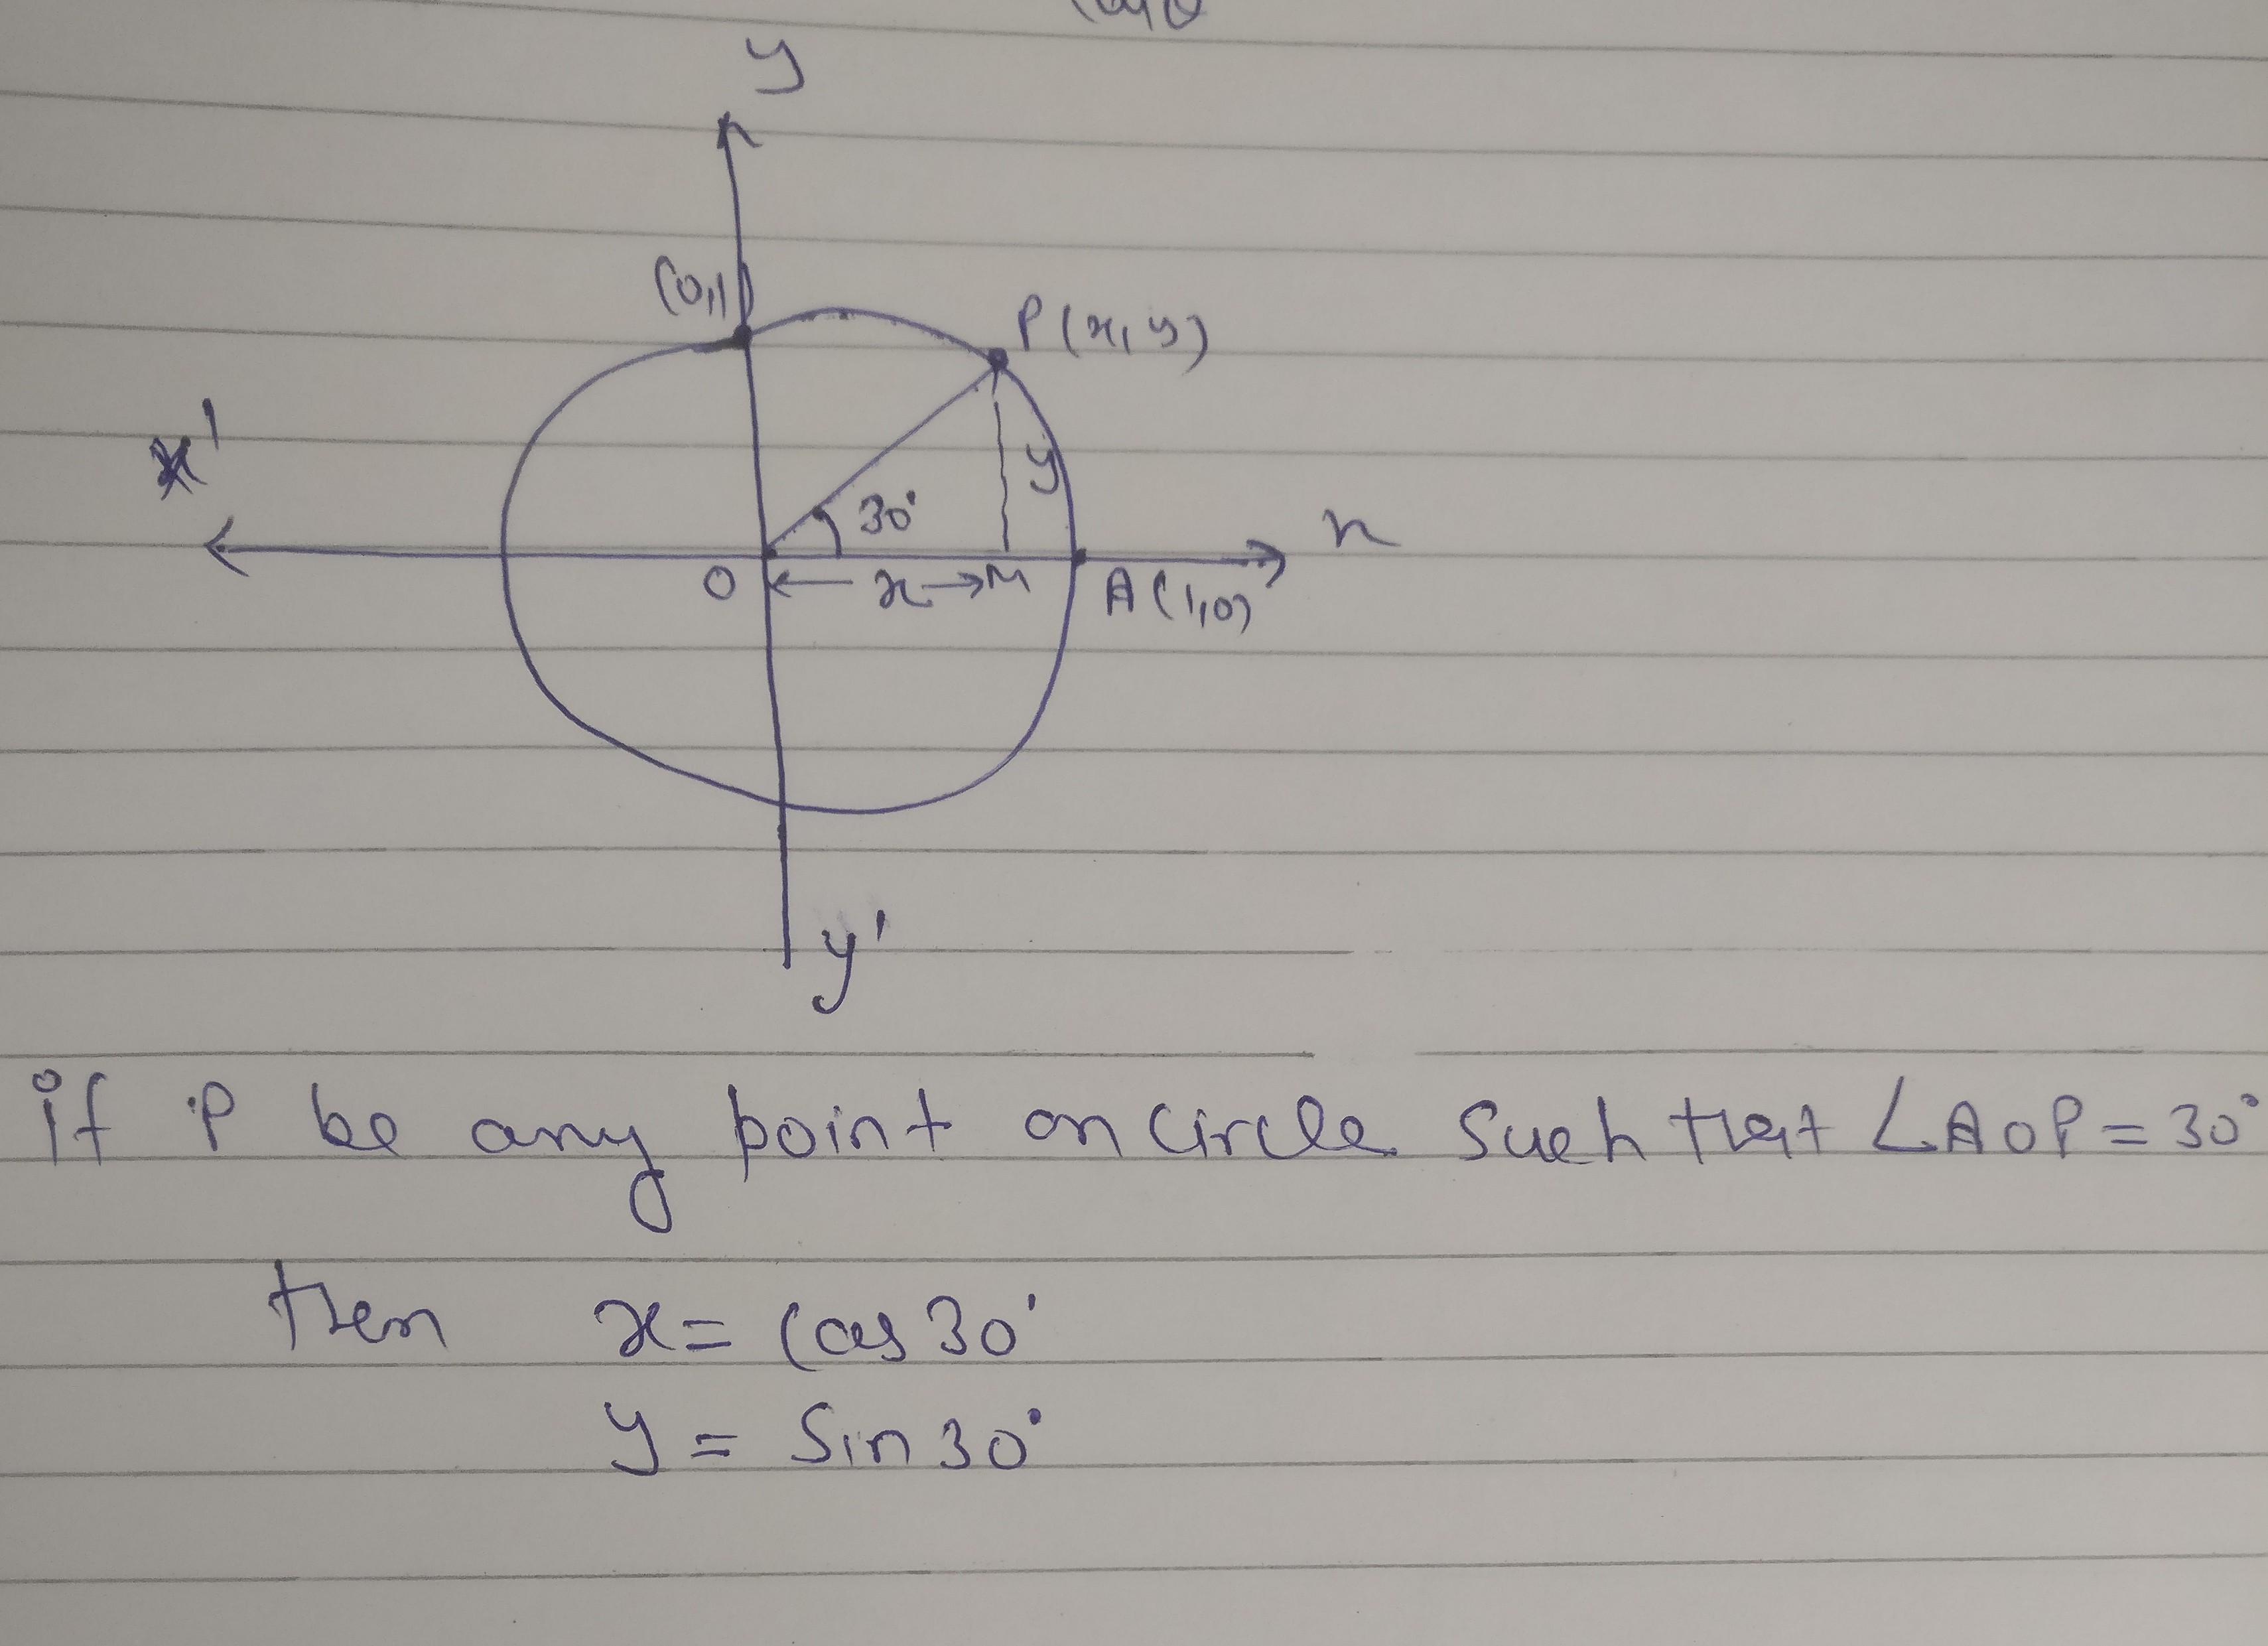 y
(0,1)
P(x, y)
x'
y
30°
x
O
x
M
A(1,0)
y'
if P be any point on circle such that ∠AOP = 30°
then x = Cos 30°
y = Sin 30°